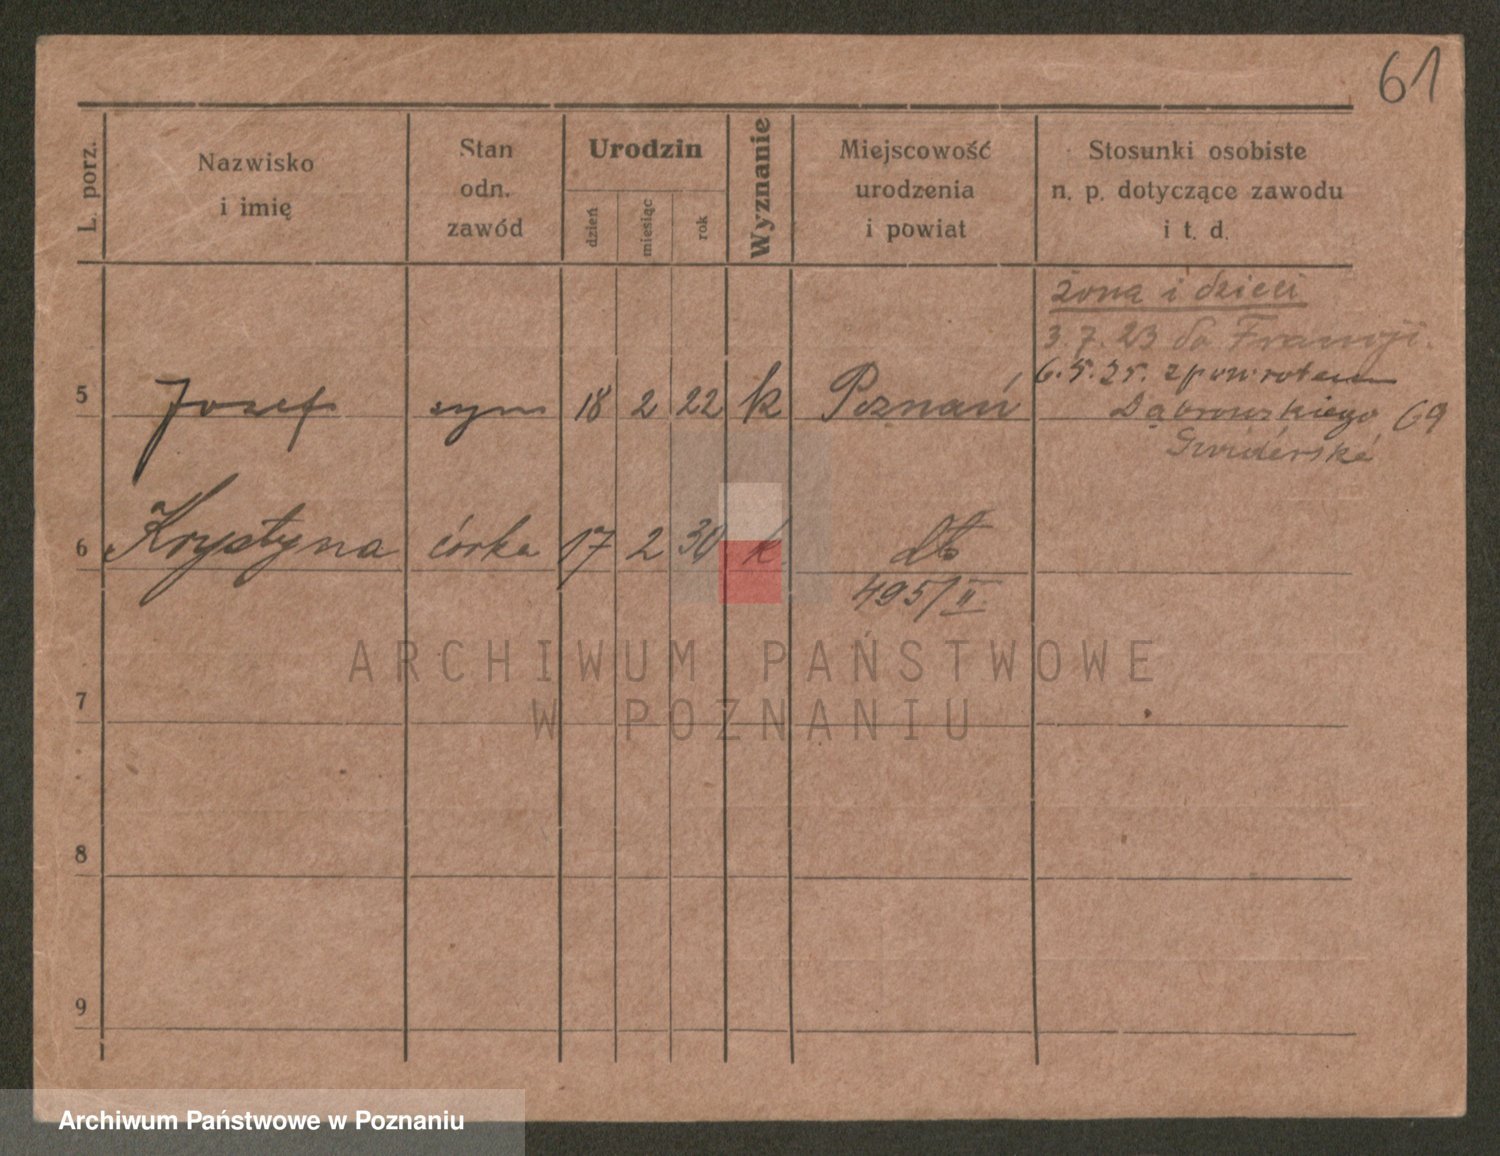 61
L. porz.
Nazwisko
i imię
Stan
odn.
zawód
Urodzin
dzień
miesiąc
rok
Wyznanie
Miejscowość
urodzenia
i powiat
Stosunki osobiste
n. p. dotyczące zawodu
i t. d.
żona i dzieci
3.7.23 do Francji.
6.5.25. z powrotem
5 Józef syn 18 2 22 k Poznań
Dąbrowskiego 69
6 Krystyna córka 17 2 30 k. dto
495/II.
7
8
9
ARCHIWUM PAŃSTWOWE
W POZNANIU
Archiwum Państwowe w Poznaniu